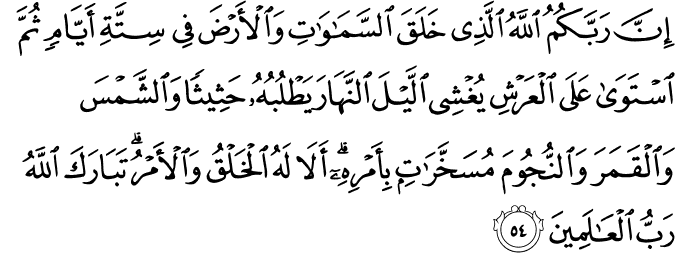 إِنَّ رَبَّكُمُ ٱللَّهُ ٱلَّذِى خَلَقَ ٱلسَّمَٰوَٰتِ وَٱلْأَرْضَ فِى سِتَّةِ أَيَّامٍ ثُمَّ
ٱسْتَوَىٰ عَلَى ٱلْعَرْشِ يُغْشِى ٱلَّيْلَ ٱلنَّهَارَ يَطْلُبُهُۥ حَثِيثًا وَٱلشَّمْسَ
وَٱلْقَمَرَ وَٱلنُّجُومَ مُسَخَّرَٰتٍۭ بِأَمْرِهِۦٓ ۗ أَلَا لَهُ ٱلْخَلْقُ وَٱلْأَمْرُ ۗ تَبَارَكَ ٱللَّهُ
رَبُّ ٱلْعَٰلَمِينَ ٥٤